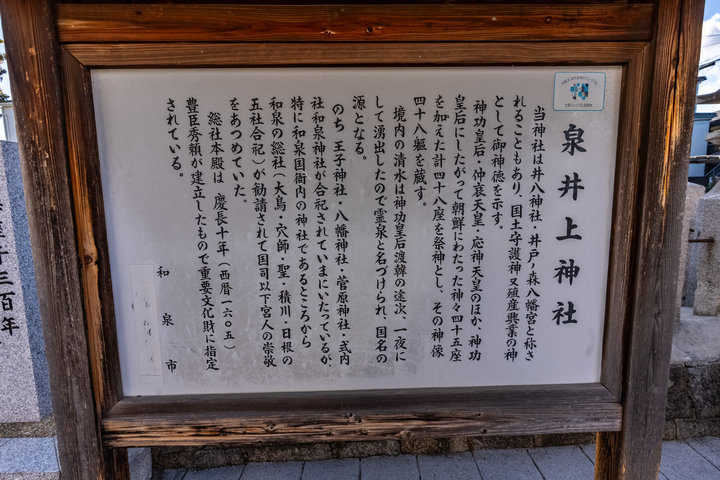 泉井上神社
当神社は井八神社・井戸ノ森八幡宮と称さ
れることもあり、国土守護神又殖産興業の神
として御神徳を示す。
神功皇后・仲哀天皇・応神天皇のほか、神功
皇后にしたがって朝鮮にわたった神々四十五座
を加えた計四十八座を祭神とし、その神像
四十八軀を蔵す。
境内の清水は神功皇后渡韓の途次、一夜に
して湧出したので霊泉と名づけられ、国名の
源となる。
のち 王子神社・八幡神社・菅原神社・式内
社和泉神社が合祀されていまにいたっているが、
特に和泉国衙内の神社であるところから
和泉の総社(大鳥・穴師・聖・積川・日根の
五社合祀)が勧請されて国司以下宮人の崇敬
をあつめていた。
総社本殿は 慶長十年(西暦一六〇五)
豊臣秀頼が建立したもので重要文化財に指定
されている。
和泉市
十三百年